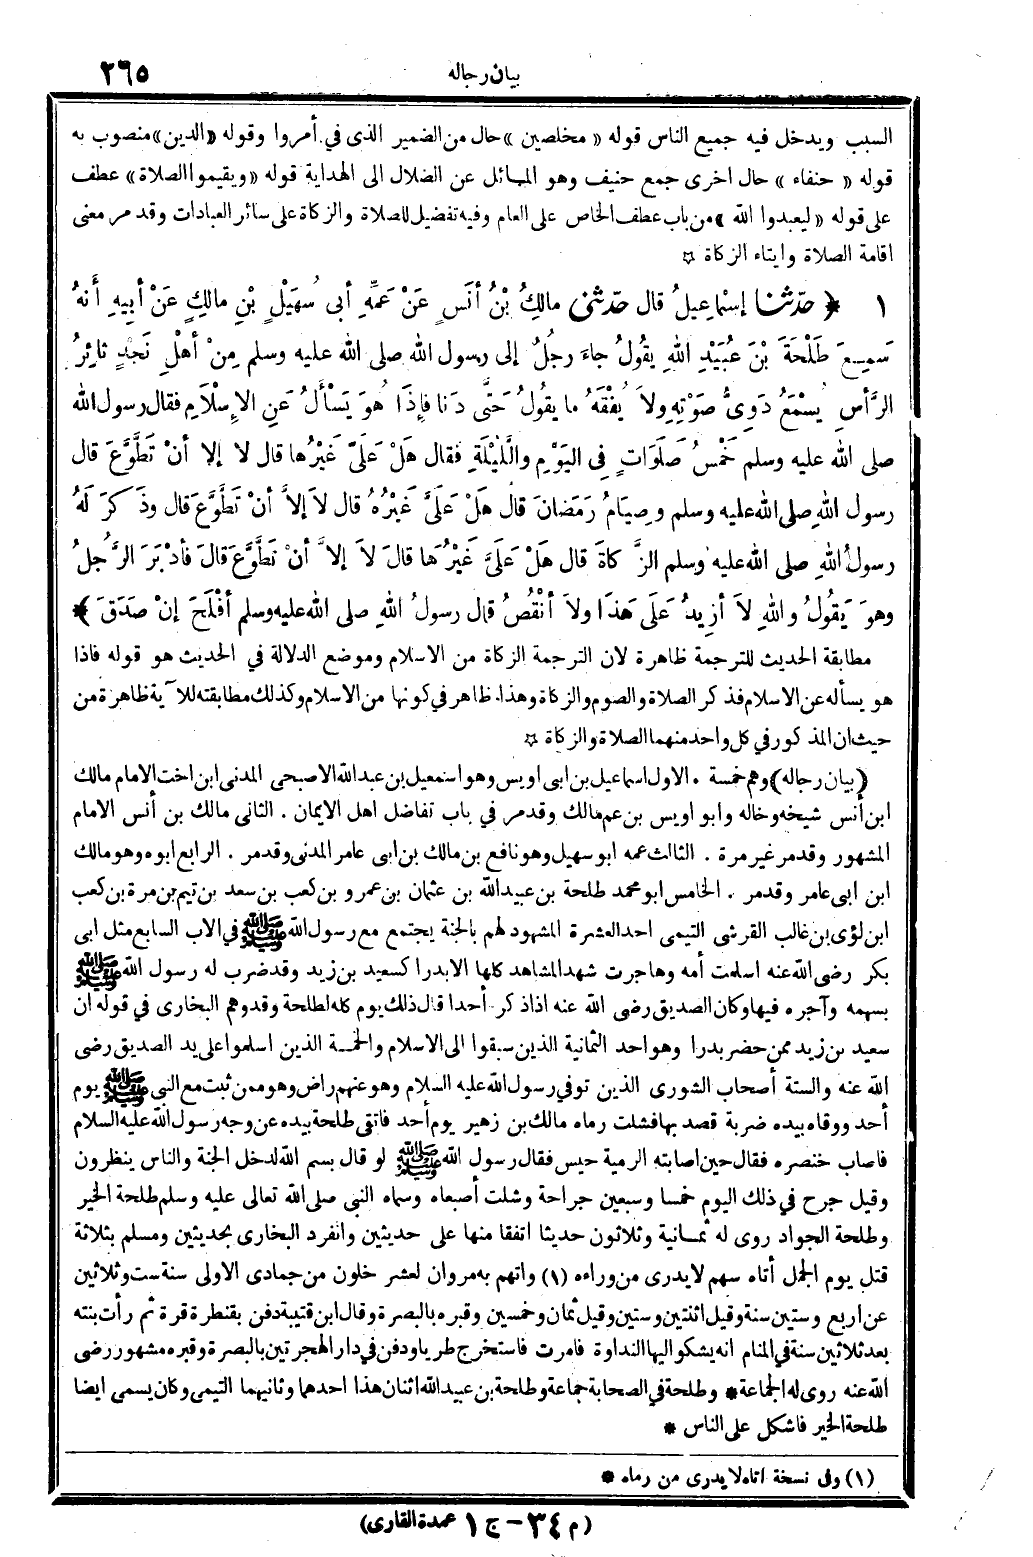 بيان رجاله
٢٦٥
السبب ويدخل فيه جميع الناس قوله « مخلصين » حال من الضمير الذى في أمروا وقوله «الدين» منصوب به
قوله « حنفاء » حال اخرى جمع حنيف وهو المائل عن الضلال الى الهداية قوله «ويقيموا الصلاة» عطف
على قوله « ليعبدوا الله » من باب عطف الخاص على العام وفيه تفضيل للصلاة والزكاة على سائر العبادات وقد مر معنى
اقامة الصلاة وايتاء الزكاة ☆
١ ﴿ حدّثنا إسْماعِيلُ قال حدّثنى مالِكُ بْنُ أنَسٍ عَنْ عَمِّهِ أبى سُهَيْلِ بْنِ مالِكٍ عَنْ أبِيهِ أنهُ
سَمِعَ طَلْحَةَ بْنَ عُبَيْدِ اللهِ يقُولُ جاءَ رجُلٌ إلى رسول الله صلى الله عليه وسلم مِنْ أهْلِ نَجْدٍ ثائِرُ
الرَّأسِ يُسْمَعُ دَوِىُّ صَوْتِهِ ولاَ يُفْقَهُ ما يقُولُ حَتَّى دَنا فإِذَا هُوَ يَسْألُ عَنِ الإِسْلاَمِ فقال رسول الله
صلى الله عليه وسلم خَمْسُ صَلَوَاتٍ فِى اليَوْمِ والَّليْلَةِ فقال هَلْ عَلَىَّ غَيْرُها قال لا إلا أنْ تَطَّوَّعَ قال
رسول اللهِ صلى الله عليه وسلم وصِيَامُ رَمَضانَ قال هَلْ عَلَىَّ غَيْرُهُ قال لاَ إلاَّ أنْ تَطَّوَّعَ قال وذَ كَرَ لَهُ
رسولُ اللهِ صلى الله عليه وسلم الزَّ كاةَ قال هَلْ عَلَىَّ غَيْرُها قالَ لاَ إلاَّ أنْ تَطَّوَّعَ قالَ فأدْبَرَ الرَّجُلُ
وهوَ يَقُولُ واللهِ لاَ أزِيدُ عَلَى هَذَا ولاَ أنْقُصُ قال رسولُ اللهِ صلى الله عليه وسلم أفْلَحَ إنْ صَدَقَ ﴾
مطابقة الحديث للترجمة ظاهرة لان الترجمة الزكاة من الاسلام وموضع الدلالة في الحديث هو قوله فاذا
هو يسأله عن الاسلام فذكر الصلاة والصوم والزكاة وهذا ظاهر في كونها من الاسلام وكذلك مطابقته للآية ظاهرة من
حيث ان المذكور في كل واحد منهما الصلاة والزكاة ☆
(بيان رجاله) وهم خمسة . الاول اسماعيل بن ابى اويس وهو اسمعيل بن عبد الله الاصبحى المدنى ابن اخت الامام مالك
ابن أنس شيخه وخاله وابو اويس بن عم مالك وقد مر في باب تفاضل اهل الايمان . الثانى مالك بن أنس الامام
المشهور وقد مر غير مرة . الثالث عمه ابو سهيل وهو نافع بن مالك بن ابى عامر المدنى وقد مر . الرابع ابوه وهو مالك
ابن ابى عامر وقد مر . الخامس ابو محمد طلحة بن عبيد الله بن عثمان بن عمرو بن كعب بن سعد بن تيم بن مرة بن كعب
ابن لؤى بن غالب القرشى التيمى احد العشرة المشهود لهم بالجنة يجتمع مع رسول الله ﷺ في الاب السابع مثل ابى
بكر رضى الله عنه اسلمت أمه وهاجرت شهد المشاهد كلها الا بدرا كسعيد بن زيد وقد ضرب له رسول الله ﷺ
بسهمه وآجره فيها وكان الصديق رضى الله عنه اذا ذكر أحدا قال ذلك يوم كله لطلحة وقد وهم البخارى في قوله ان
سعيد بن زيد ممن حضر بدرا وهو احد الثمانية الذين سبقوا الى الاسلام والخمسة الذين اسلموا على يد الصديق رضى
الله عنه والستة أصحاب الشورى الذين توفي رسول الله عليه السلام وهو عنهم راض وهو ممن ثبت مع النبى ﷺ يوم
أحد ووقاه بيده ضربة قصد بها فشلت رماه مالك بن زهير يوم أحد فاتقى طلحة بيده عن وجه رسول الله عليه السلام
فاصاب خنصره فقال حين اصابته الرمية حس فقال رسول الله ﷺ لو قال بسم الله لدخل الجنة والناس ينظرون
وقيل جرح في ذلك اليوم خمسا وسبعين جراحة وشلت أصبعاه وسماه النبى صلى الله تعالى عليه وسلم طلحة الخير
وطلحة الجواد روى له ثمانية وثلاثون حديثا اتفقا منها على حديثين وانفرد البخارى بحديثين ومسلم بثلاثة
قتل يوم الجمل أتاه سهم لا يدرى من وراءه (١) واتهم به مروان لعشر خلون من جمادى الاولى سنة ست وثلاثين
عن اربع وستين سنة وقيل اثنتين وستين وقيل ثمان وخمسين وقبره بالبصرة وقال ابن قتيبة دفن بقنطرة قرة ثم رأت بنته
بعد ثلاثين سنة في المنام انه يشكو اليها النداوة فامرت فاستخرج طريا ودفن في دار الهجرتين بالبصرة وقبره مشهور رضى
الله عنه روى له الجماعة * وطلحة في الصحابة جماعة وطلحة بن عبيد الله اثنان هذا احدهما وثانيهما التيمى وكان يسمى ايضا
طلحة الخير فاشكل على الناس *
(١) وفى نسخة اتاه لا يدرى من رماه *
(م ٣٤ - ج ١ عمدة القارى)